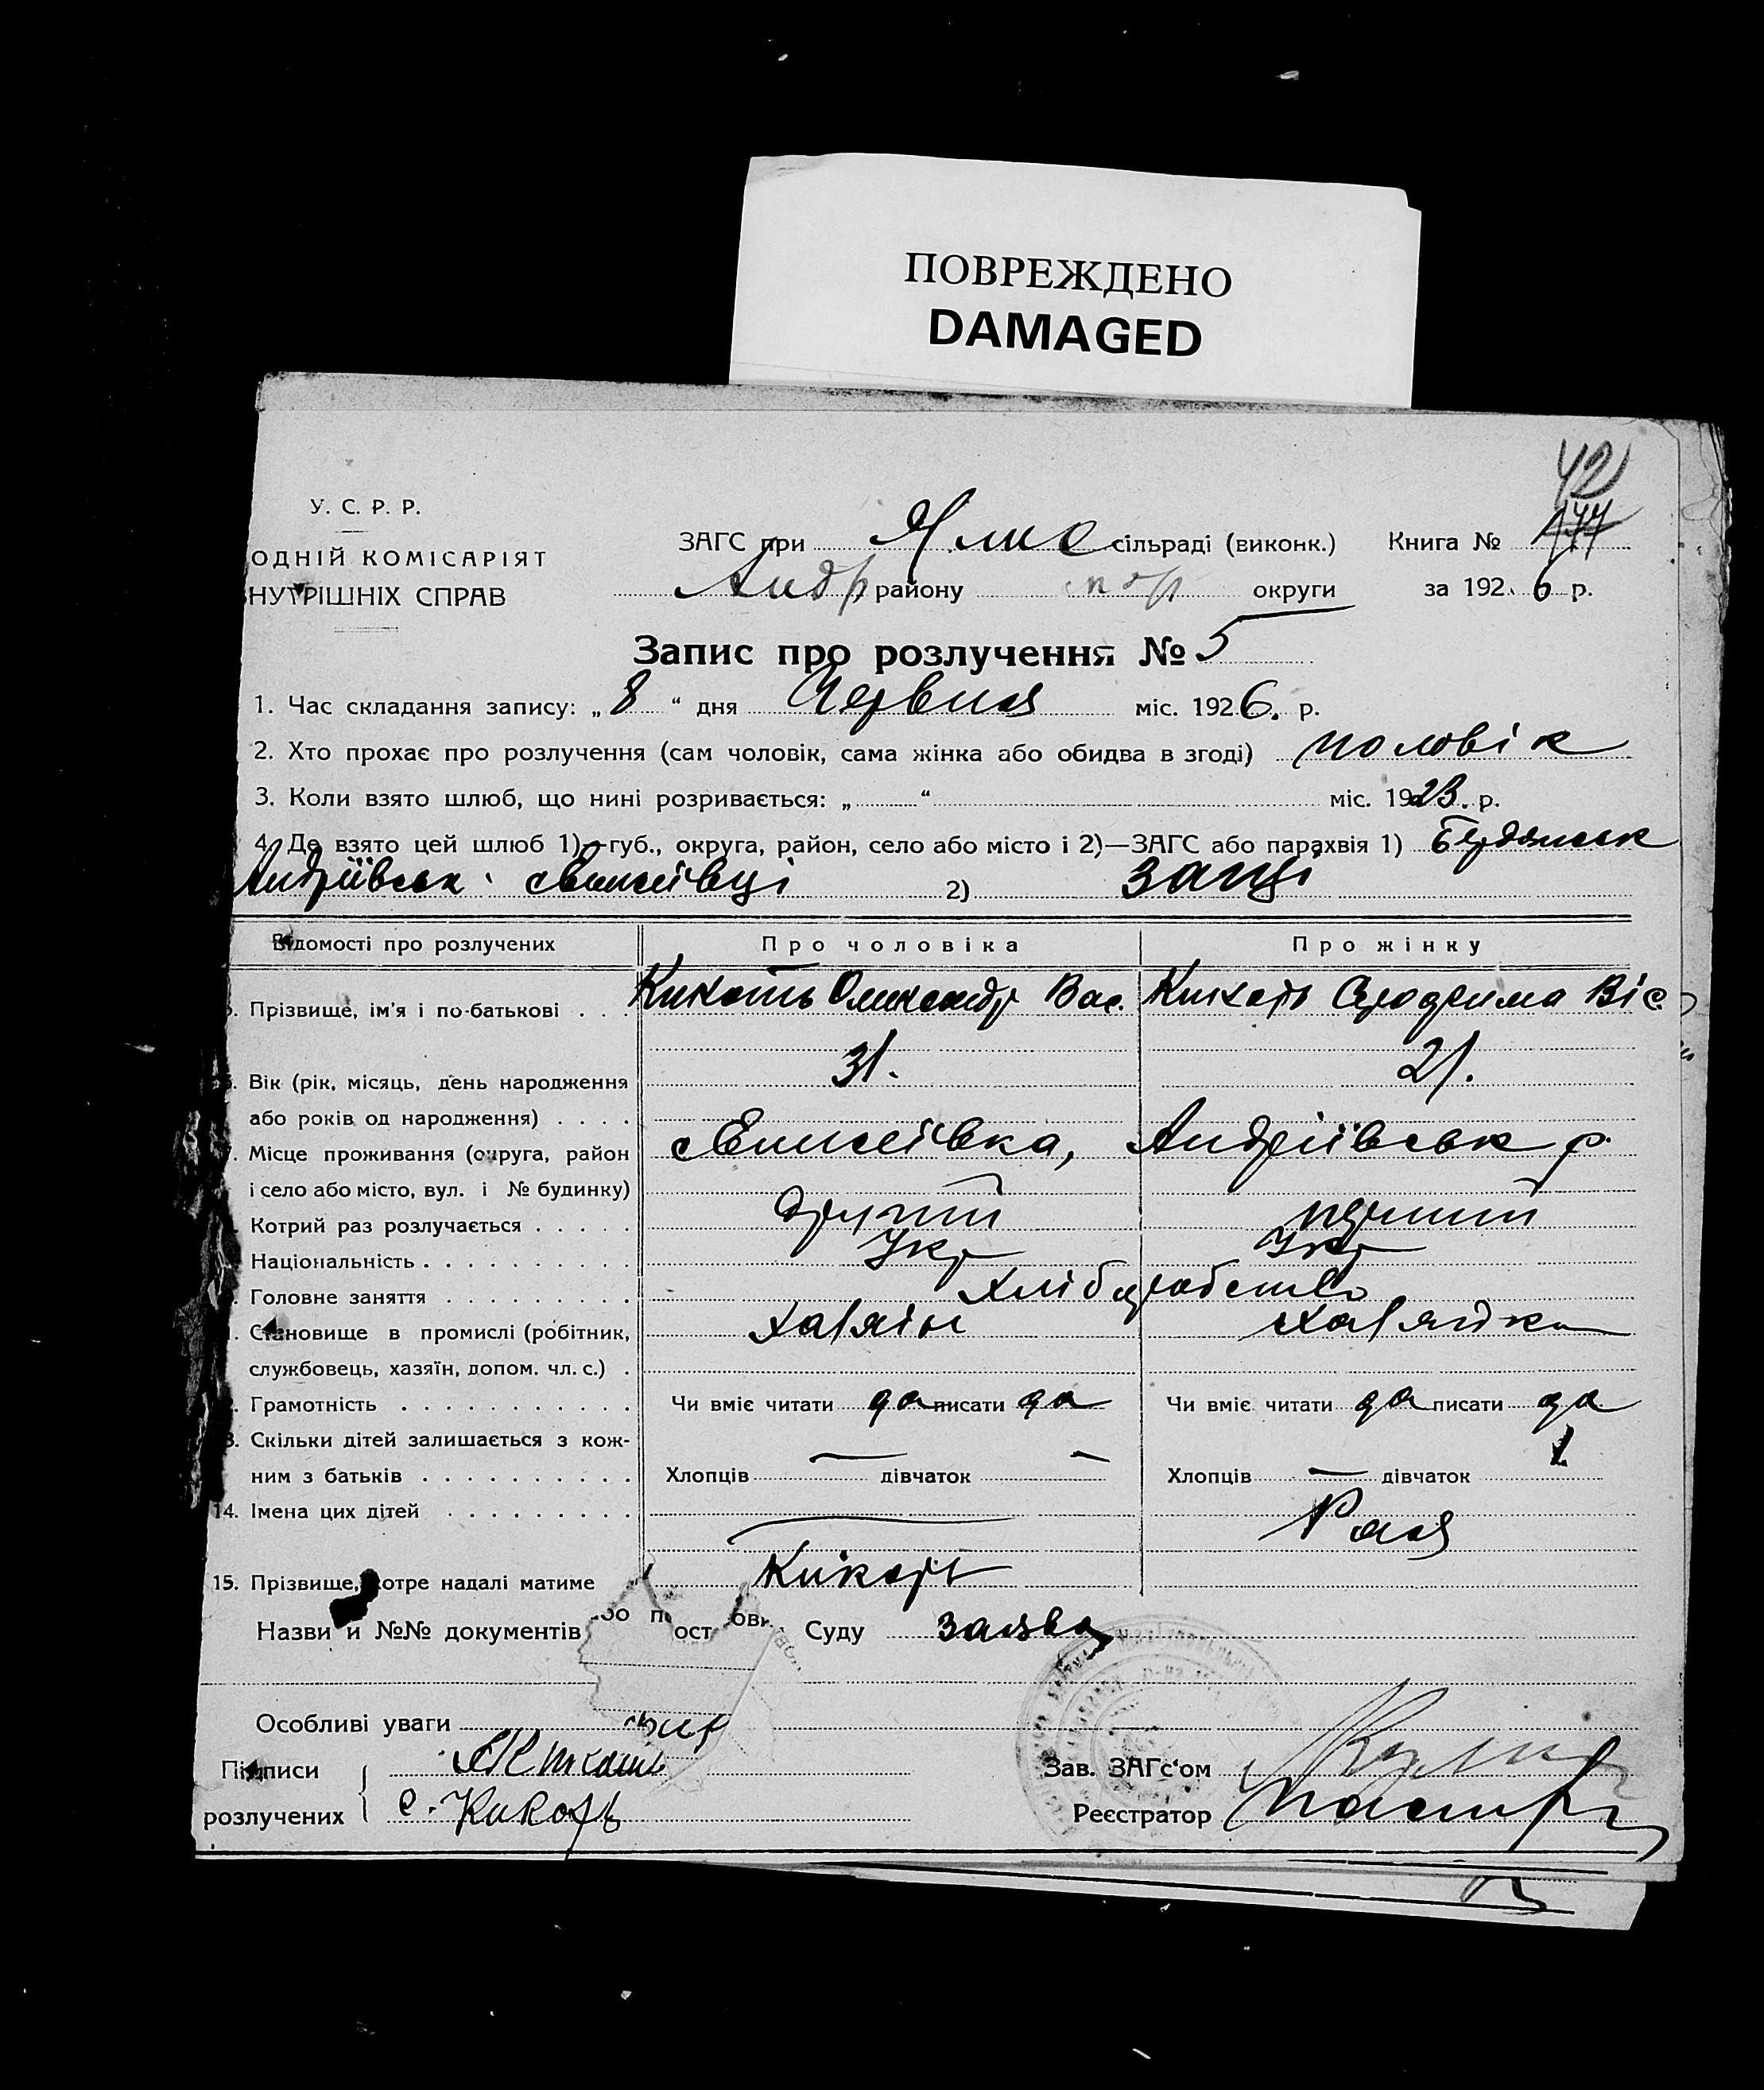 ПОВРЕЖДЕНО
DAMAGED
42
У. С. Р. Р.
ЗАГС при сільраді (виконк.) Книга № 144
ОДНІЙ КОМІСАРІЯТ
Андр району округи за 1926 р.
НУТРІШНІХ СПРАВ
Запис про розлучення № 5
1. Час складання запису: „8“ дня Червня міс. 1926. р.
2. Хто прохає про розлучення (сам чоловік, сама жінка або обидва в згоді) чоловік
3. Коли взято шлюб, що нині розривається: „ “ міс. 1923. р.
4. Де взято цей шлюб 1)—губ., округа, район, село або місто і 2)—ЗАГС або парахвія 1) Бердянськ
Андріївськ Єлисеївці 2) ЗАГСі
Відомості про розлучених Про чоловіка Про жінку
5. Прізвище, ім'я і по-батькові . . . Кикоть Олександр Вас. Кикоть Вас.
31. 21.
6. Вік (рік, місяць, день народження
або років од народження) . . . .
7. Місце проживання (округа, район Єлисеївка, Андріївськ р.
і село або місто, вул. і № будинку)
Котрий раз розлучається . . . . . другий перший
Національність . . . . . . . . . . Укр Укр
Головне заняття . . . . . . . . . Хліборобство
Становище в промислі (робітник, Хазяїн Хазяйка
службовець, хазяїн, допом. чл. с.) .
Грамотність . . . . . . . . . . . Чи вміє читати да писати да Чи вміє читати да писати да
3. Скільки дітей залишається з кож-
ним з батьків . . . . . . . . . . Хлопців — дівчаток — Хлопців — дівчаток 1.
14. Імена цих дітей . . . . . . . . . — Рая
15. Прізвище, котре надалі матиме Кикоть
Назви и №№ документів або пост Суду заява
Особливі уваги
Підписи А Кикоть Зав. ЗАГс'ом
розлучених Є. Кикоть Реєстратор